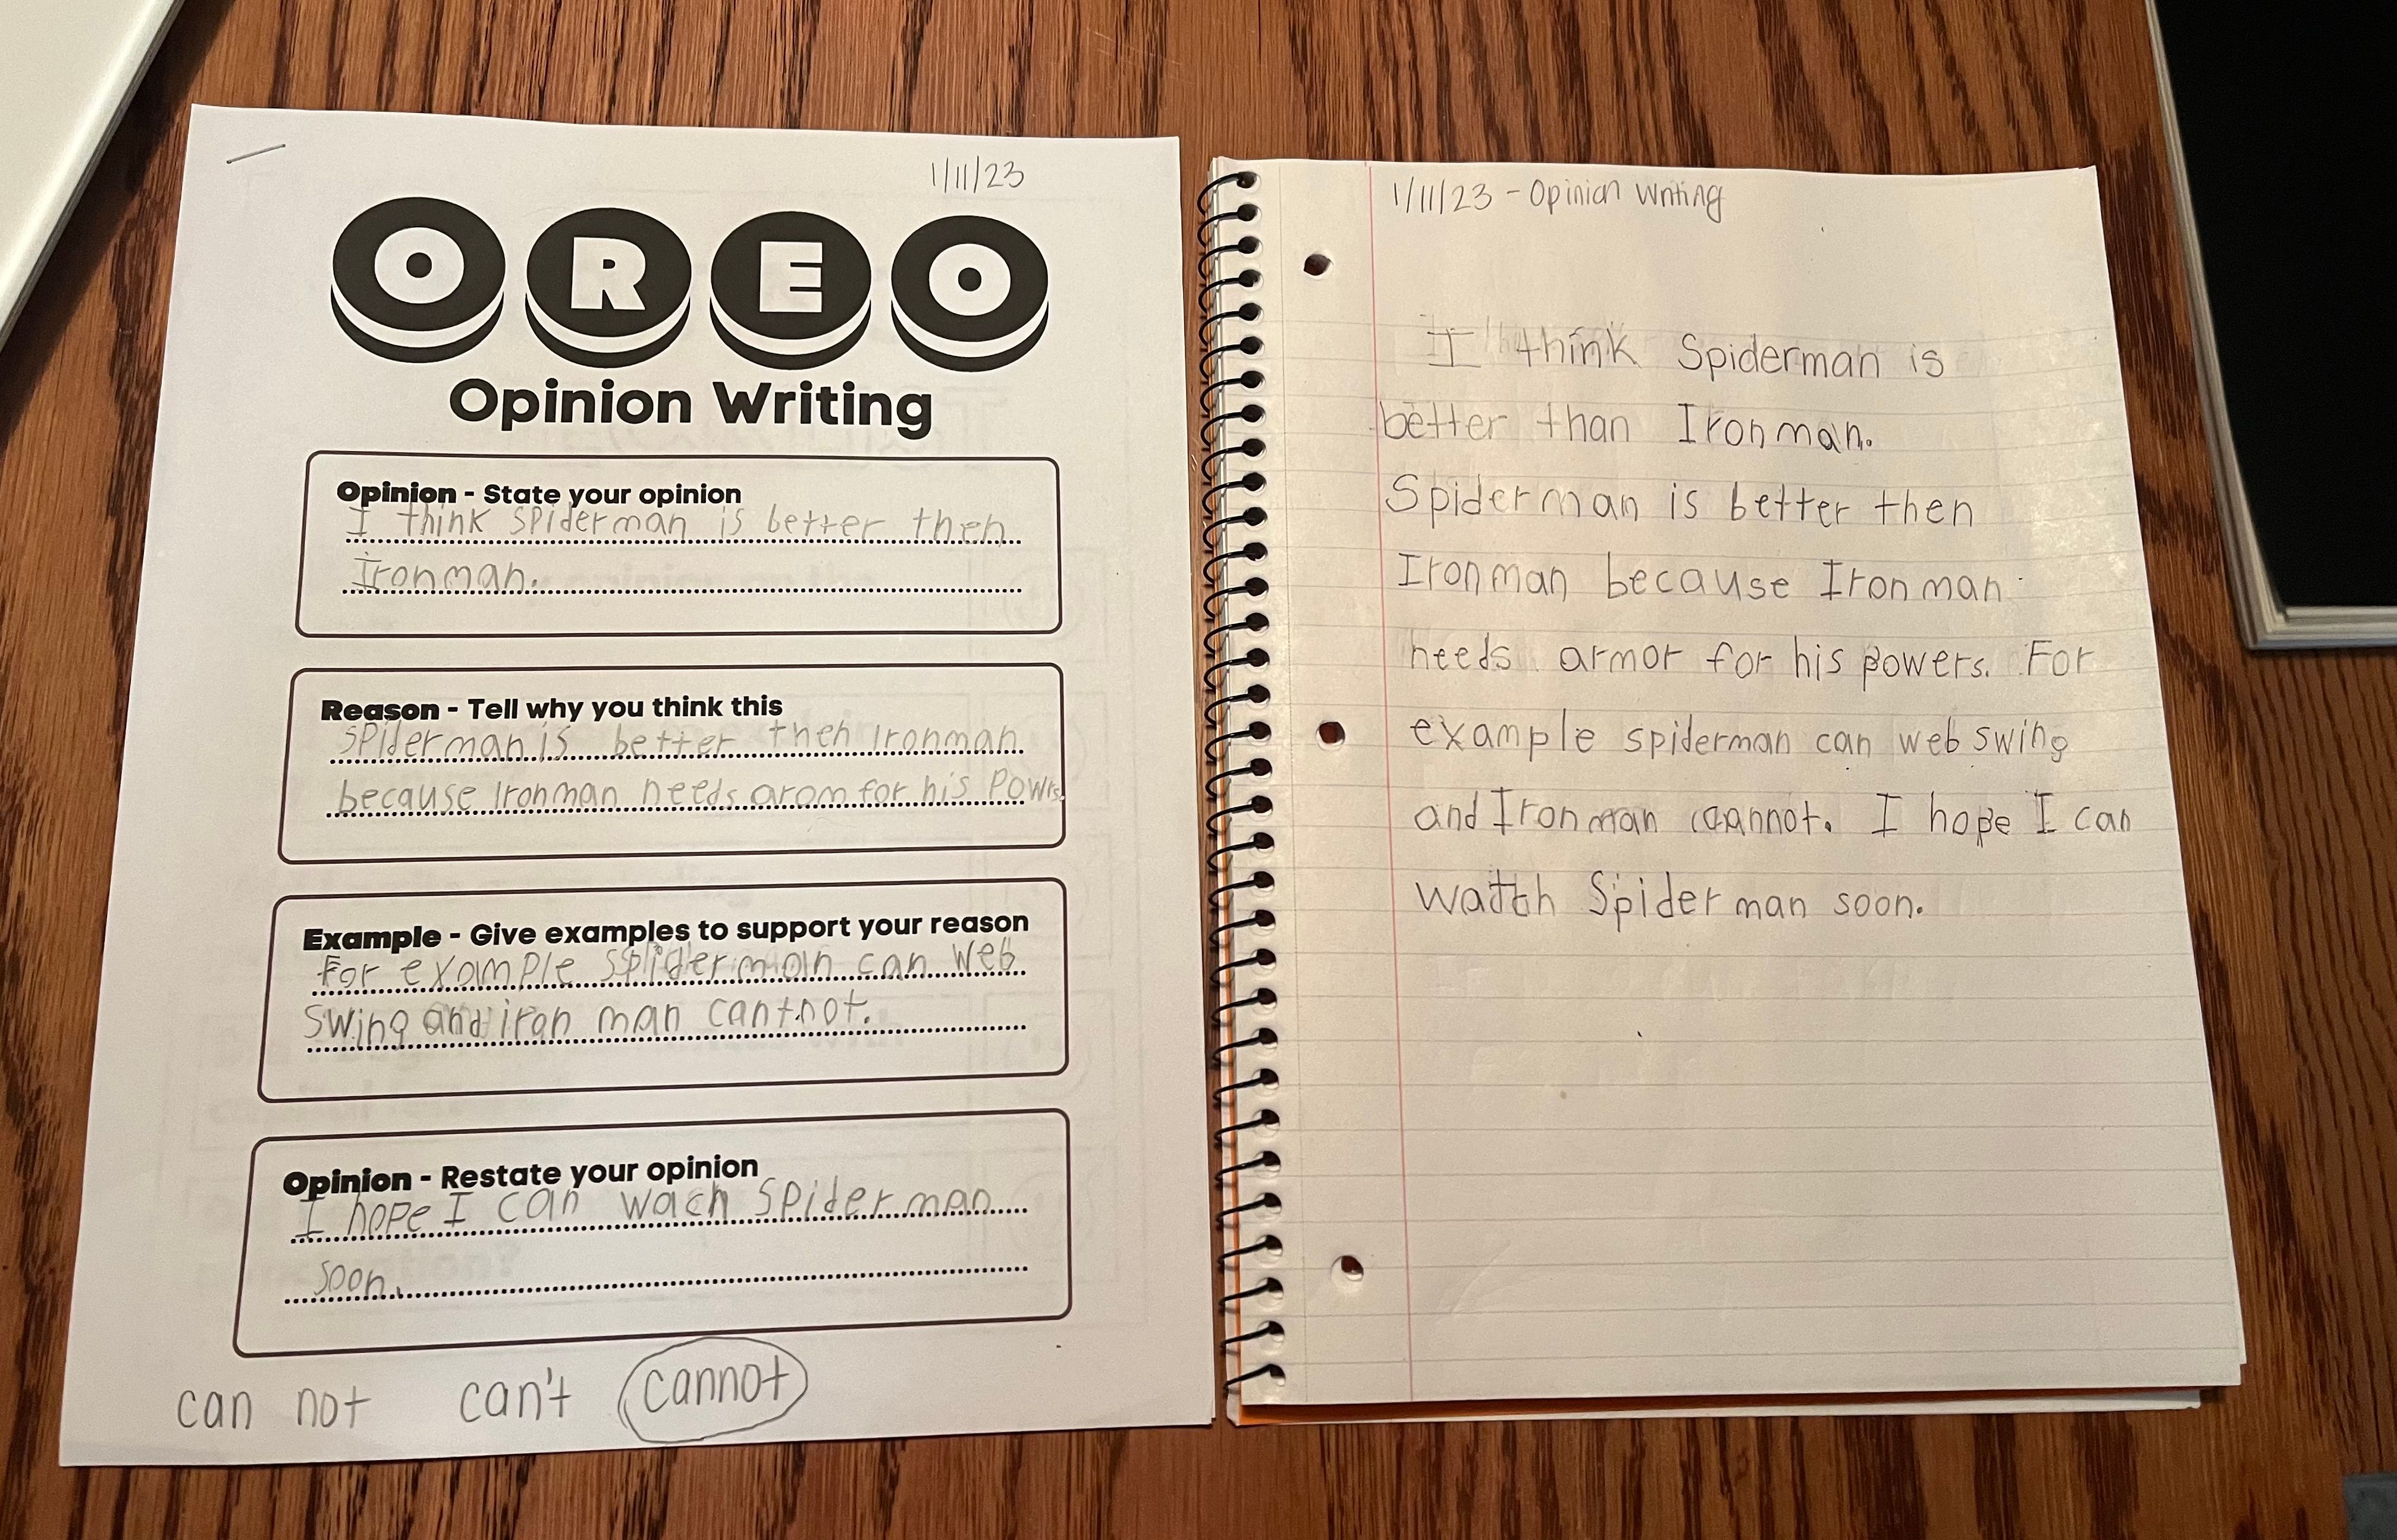 1/11/23
OREO
Opinion Writing
Opinion - State your opinion
I think spiderman is better then
Ironman.
Reason - Tell why you think this
spiderman is better then Ironman
because Ironman needs arom for his Powrs.
Example - Give examples to support your reason
For example spiderman can web
swing and iron man cantnot.
Opinion - Restate your opinion
I hope I can wach Spider man
soon.
can not can't cannot
1/11/23 - Opinion Writing
I think Spiderman is
better than Ironman.
Spiderman is better then
Ironman because Ironman
needs armor for his powers. For
example spiderman can web swing
and Iron man cannot. I hope I can
watch Spider man soon.